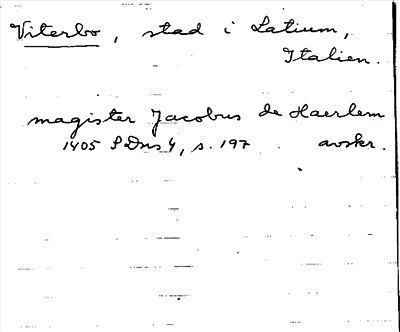 Viterbo, stad i Latium,
Italien.
magister Jacobus de Haerlem
1405 SDns 4, s. 197 avskr.